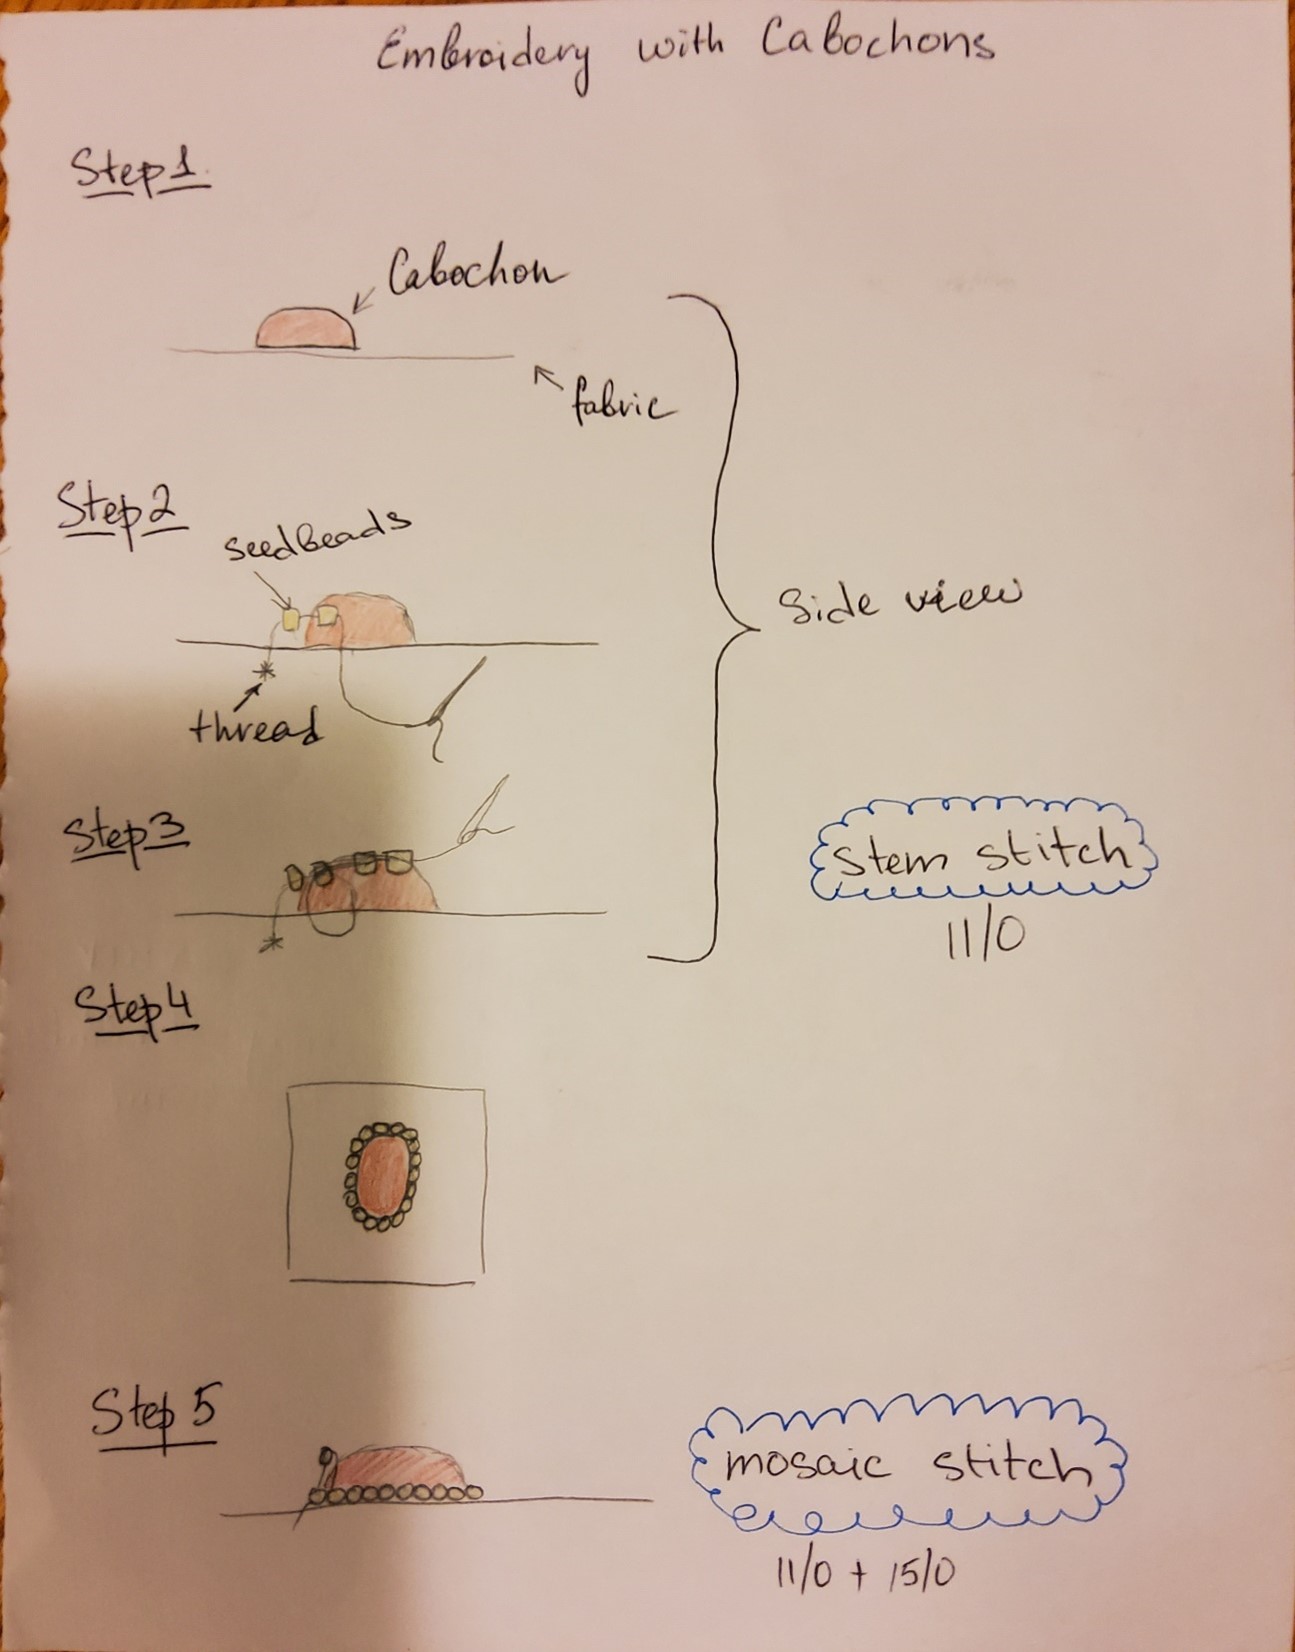 Embroidery with Cabochons
Step 1.
Cabochon
fabric
Step 2
SeedBeads
thread
Side view
Step 3
stem stitch
11/0
Step 4
Step 5
mosaic stitch
11/0 + 15/0